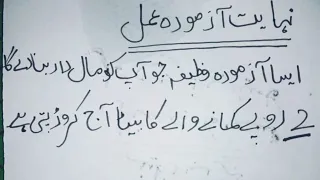 نہایت آزمودہ عمل
ایسا آزمودہ وظیفہ جو آپ کو مال دار بنا دے گا
2 روپے کمانے والے کا بیٹا آج کروڑ پتی ہے